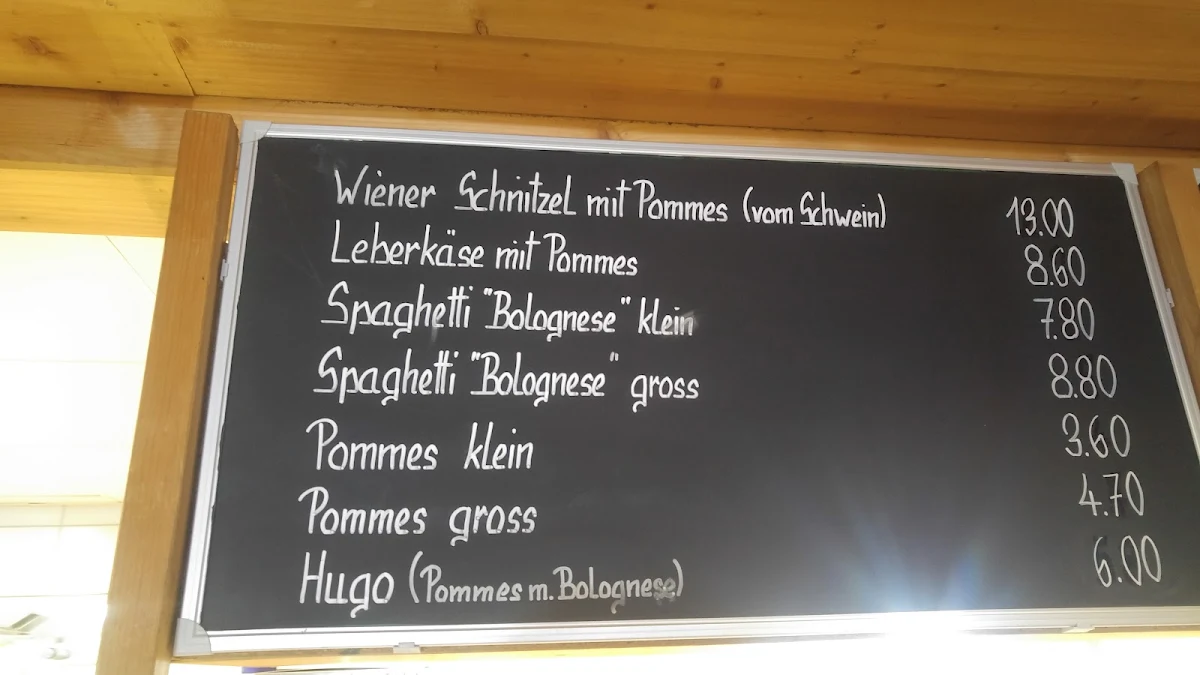 Wiener Schnitzel mit Pommes (vom Schwein) 13.00
Leberkäse mit Pommes 8.60
Spaghetti "Bolognese" klein 7.80
Spaghetti "Bolognese" gross 8.80
Pommes klein 3.60
Pommes gross 4.70
Hugo (Pommes m. Bolognese) 6.00